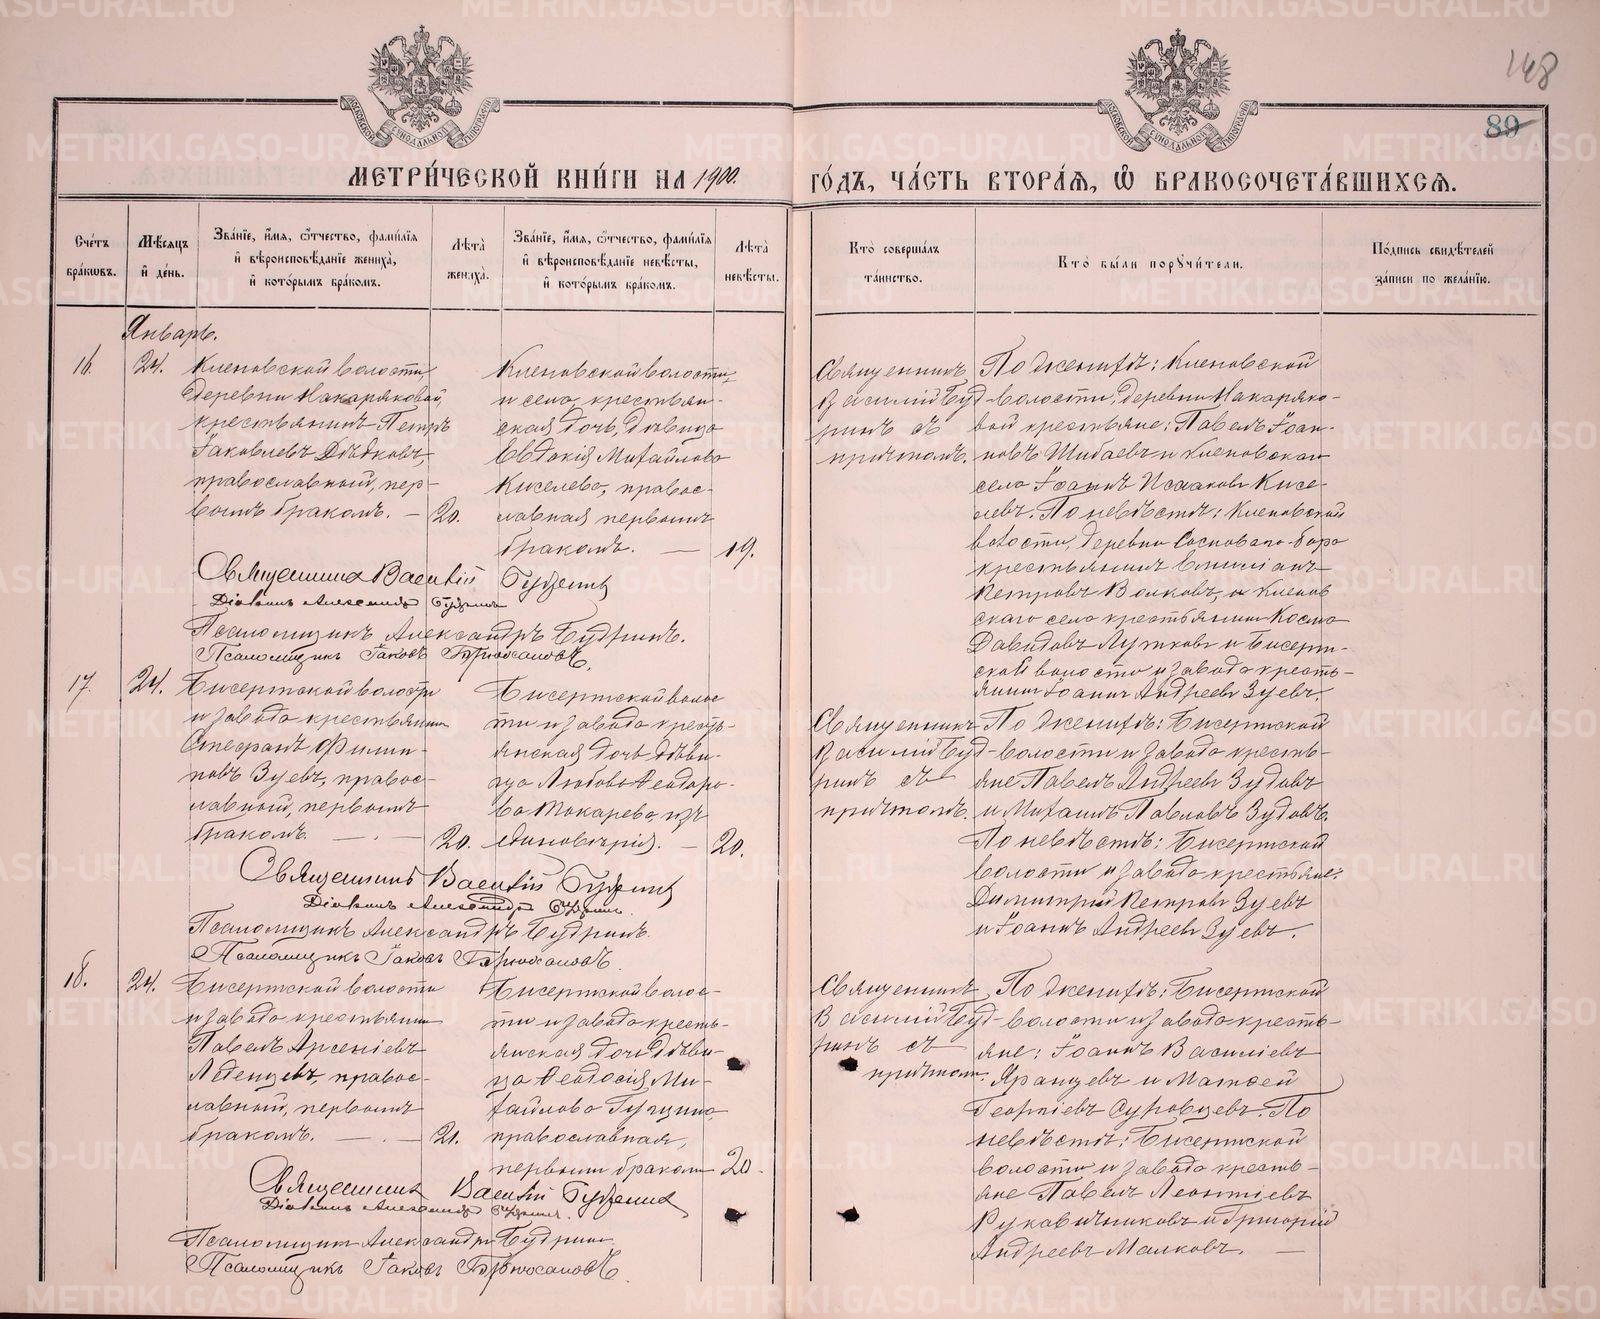 148
89
МЕТРИ́ЧЕСКОЙ КНИ́ГИ НА 1900. ГО́ДЪ, ЧА́СТЬ ВТОРА́Я, Ѿ БРАКОСОЧЕТА́ВШИХСЯ.
Сче́тъ бра́ковъ.
Мѣ́сяцъ и́ де́нь.
Зва́нїе, и́мя, о́тчество, фами́лїя и́ вѣроисповѣ́данїе жениха̀, и́ кото́рымъ бра́комъ.
Лѣта̀ жениха̀.
Зва́нїе, и́мя, о́тчество, фами́лїя и́ вѣроисповѣ́данїе невѣ́сты, и́ кото́рымъ бра́комъ.
Лѣта̀ невѣ́сты.
Кто̀ соверша́лъ та́инство.
Кто̀ бы́ли порꙋчи́тели.
По́дпись свидѣ́телей за́писи по жела́нїю.
Январь.
16.
24.
Кленовской волости
деревни Макаряковой,
крестьянинъ Петръ
Іаковлевъ Дѣдковъ,
православный, пер-
вымъ бракомъ. —
20.
Кленовской волости,
и села, крестьян-
ская дочь, дѣвица
Евдокія Михайлова
Киселева, правос-
лавная первымъ
бракомъ. —
19.
Священникъ
Василій Буд-
ринъ съ
причтомъ.
По женихѣ: Кленовской
волости, деревни Макаряко-
вой крестьяне: Павелъ Іоан-
новъ Шибаевъ и Кленовскаго
села Іоаннъ Исааковъ Кисе-
левъ. По невѣстѣ: Кленовской
волости, деревни Сосноваго-бора
крестьянинъ Емиліанъ
Петровъ Волковъ, и Кленов
скаго села крестьянинъ Косма
Давидовъ Лутковъ и Бисерт-
ской волости и завода кресть-
янинъ Іоаннъ Андреевъ Зуевъ.
Священникъ Василій Будринъ
Діаконъ Александръ Будринъ
Псаломщикъ Александръ Будринъ.
Псаломщикъ Іаковъ
17.
24.
Бисертской волости
и завода крестьянинъ
Стефанъ Филип-
повъ Зуевъ, правос-
лавный, первымъ
бракомъ. —
20.
Бисертской волос
ти и завода кресть-
янская дочь дѣви-
ца Любовь Ѳеодоро-
ва Токарева изъ
единовѣрія. —
20.
Священникъ
Василій Буд-
ринъ съ
причтомъ.
По женихѣ: Бисертской
волости и завода кресть-
яне Павелъ Андреевъ Зудовъ
и Михаилъ Павловъ Зудовъ.
По невѣстѣ: Бисертской
волости и завода крестьяне:
Димитрій Петровъ Зуевъ
и Іоаннъ Андреевъ Зуевъ.
Священникъ Василій Будринъ
Діаконъ Александръ Будринъ.
Псаломщикъ Александръ Будринъ.
Псаломщикъ Іаковъ
18.
24.
Бисертской волости
и завода крестьянинъ
Павелъ Арсеніевъ
Леденцевъ, правос-
лавный, первымъ
бракомъ. —
21.
Бисертской волос-
ти и завода кресть-
янская дочь дѣви-
ца Ѳеодосія Ми-
хайлова Гущина,
православная,
первымъ бракомъ
20.
Священникъ
Василій Буд-
ринъ съ
причтомъ.
По женихѣ: Бисертской
волости и завода кресть-
яне: Іоаннъ Василіевъ
Яранцевъ и Матѳей
Георгіевъ Суровцевъ. По
невѣстѣ: Бисертской
волости и завода кресть-
яне Павелъ Леонтіевъ
Рукавичниковъ и Григорій
Андреевъ Малковъ. —
Священникъ Василій Будринъ
Діаконъ Александръ Будринъ.
Псаломщикъ Александръ Будринъ
Псаломщикъ Іаковъ
METRIKI.GASO-URAL.RU